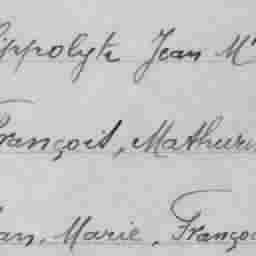 ippolyte Jean M
rançois, Mathuri
an, Marie, Franço